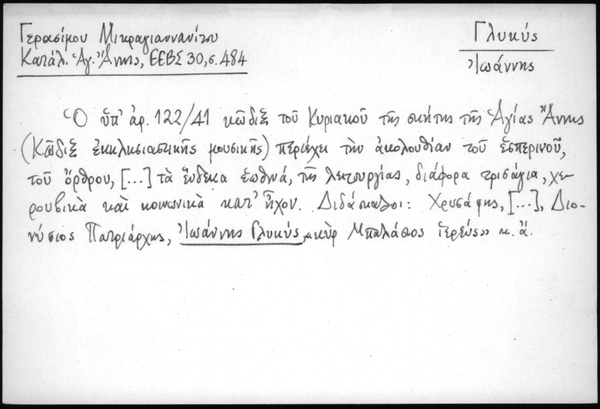 Γερασίμου Μικραγιαννανίτου
Κατάλ. Ἁγ. Ἄννης, ΕΕΒΣ 30, σ. 484
Γλυκύς
Ἰωάννης
Ὁ ὑπ' ἀρ. 122/41 κῶδιξ τοῦ Κυριακοῦ τῆς σκήτης τῆς Ἁγίας Ἄννης
(Κῶδιξ ἐκκλησιαστικῆς μουσικῆς) περιέχει τὴν ἀκολουθίαν τοῦ ἑσπερινοῦ,
τοῦ ὄρθρου, [...] τὰ ἕνδεκα ἑωθινά, τῆς λειτουργίας, διάφορα τρισάγια, χε-
ρουβικὰ καὶ κοινωνικὰ κατ' ἦχον. Διδάσκαλοι: Χρυσάφης, [...], Διο-
νύσιος Πατριάρχης, Ἰωάννης Γλυκύς, «κὺρ Μπαλάσιος ἱερεύς» κ. ἄ.